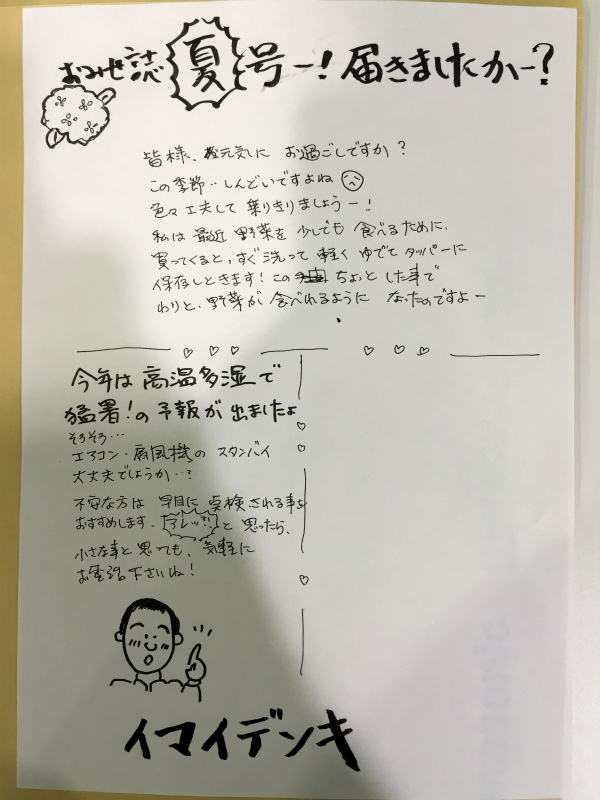 おみせ誌 夏 号ー!届きましたかー?
皆様、元気に お過ごしですか?
この季節‥しんどいですよね
色々工夫して 乗りきりましょうー!
私は 最近 野菜を 少しでも 食べるために、
買ってくると、すぐ洗って 軽く ゆでて タッパーに
保存しときます!この ちょっと した事で
わりと、野菜が 食べれるように なったのですよー
今年は 高温多湿で
猛暑!の予報が 出ましたよ
そろそろ…
エアコン・扇風機の スタンバイ
大丈夫でしょうか‥?
不安な方は 早目に 点検される事を
おすすめします。アレッ?!と 思ったら、
小さな事と 思っても、気軽に
お電話下さいね!
イマイデンキ